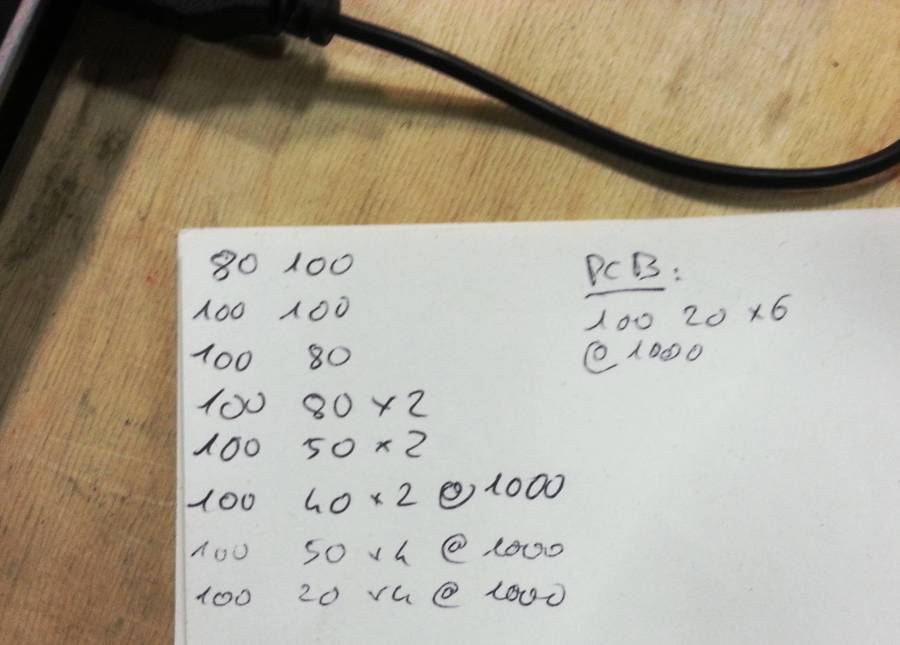 80 100
100 100
100 80
100 80 x 2
100 50 x 2
100 40 x 2 @ 1000
100 50 x 4 @ 1000
100 20 x 4 @ 1000
PCB:
100 20 x 6
@ 1000